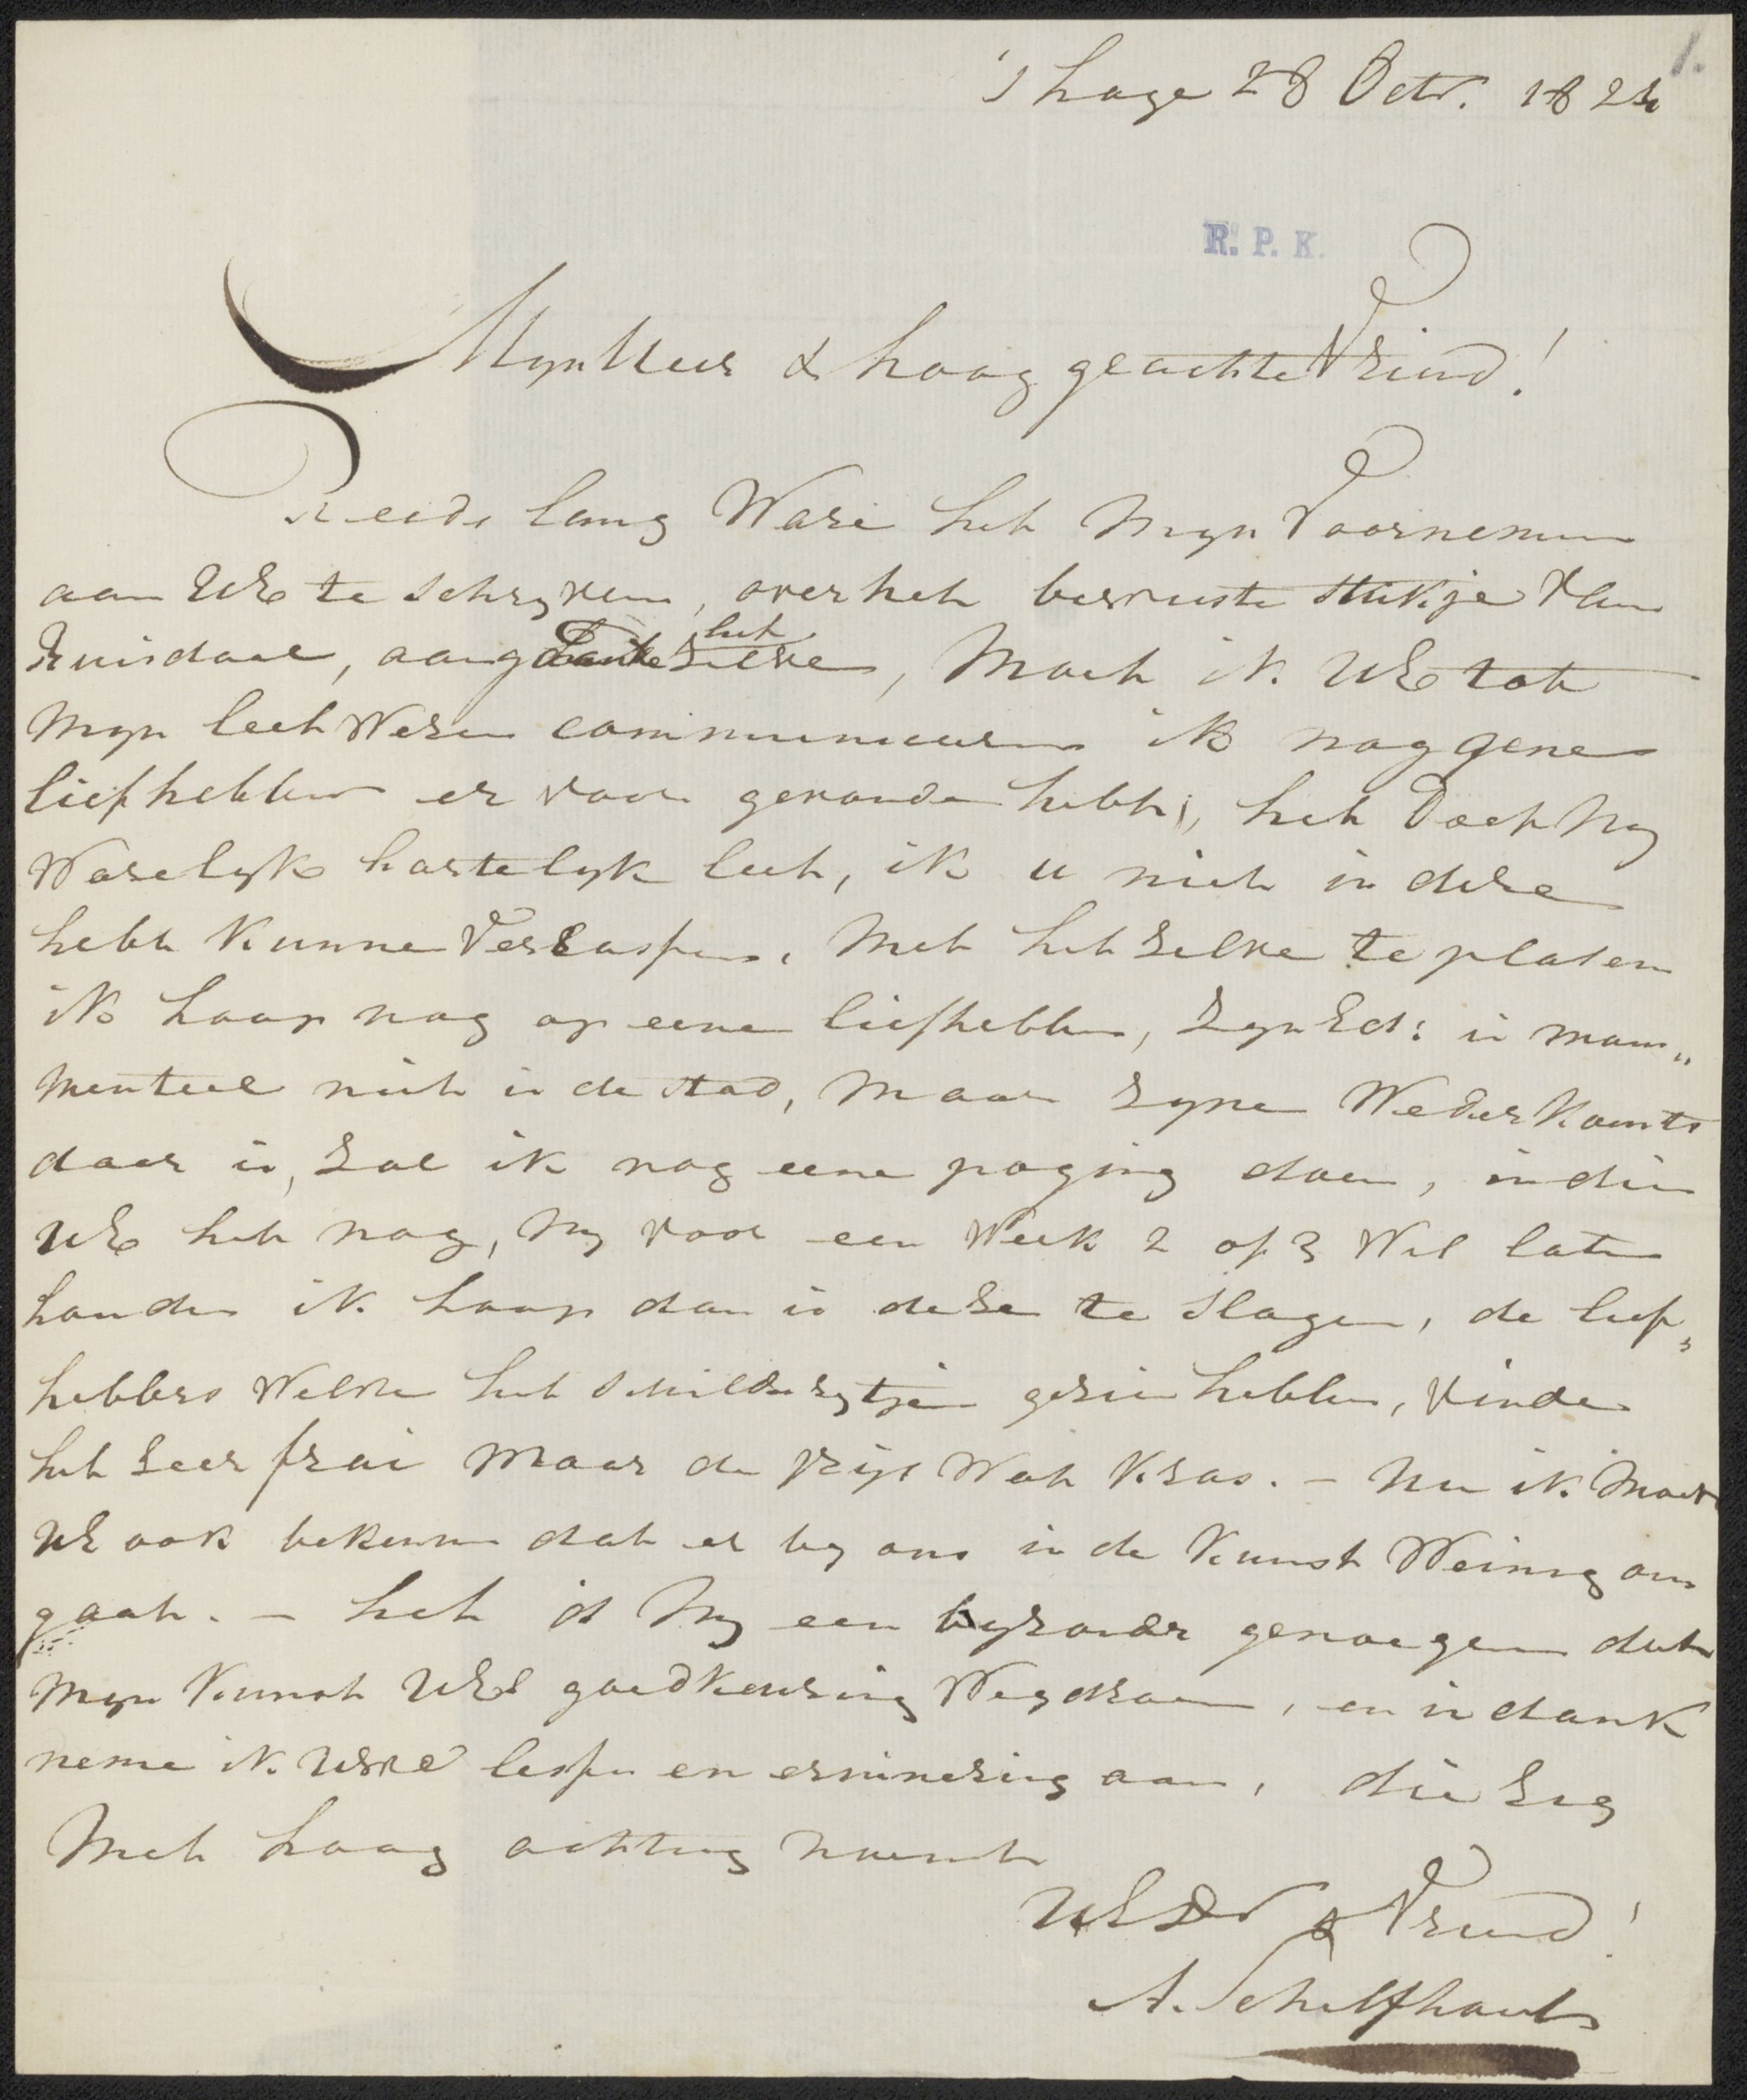 1.
's hage 28 Octr. 1824
R. P. K.
MynHeer & hoog geachte Vriend!
Reeds lang Ware het Myn Voornemen
aan UE te schryven, over het bewuste stukje van
Ruisdaal, aangaande het selve, Moet ik UE tot
Myn leetWesen communiceeren ik nog gene
liefhebber er voor gevonden hebt, het Doet My
Waarelyk hartelyk leet, ik u niet in dese
hebt kunne Verrassen, Met het selve te plasen
ik hoop nog op eene liefhebber, Zyn Ed: is mom„
menteel niet in de stad, Maar zyne Wederkomts
daar is, zal ik nog eene poging doen, indien
UE het nog, My voor een Week 2 of 3 Wil laten
houden ik hoop dan in dese te slagen, de lief„
hebbers Welke het schilderytje gesien hebben, vinde
het seer frai Maar de prijs Wat kras. - Nu ik Moet
UE ook bekenne dat er by ons in de Kunst Weinig om
gaat. - het is My een bysonder genoegen dat
Myn Kunst UEd goedkeuring Wegdroeg, en in dank
neme ik UEd lessen en erinnering aan, die sig
Met hoog achting noemt
UEDr & Vriend!
A. Schelfhout